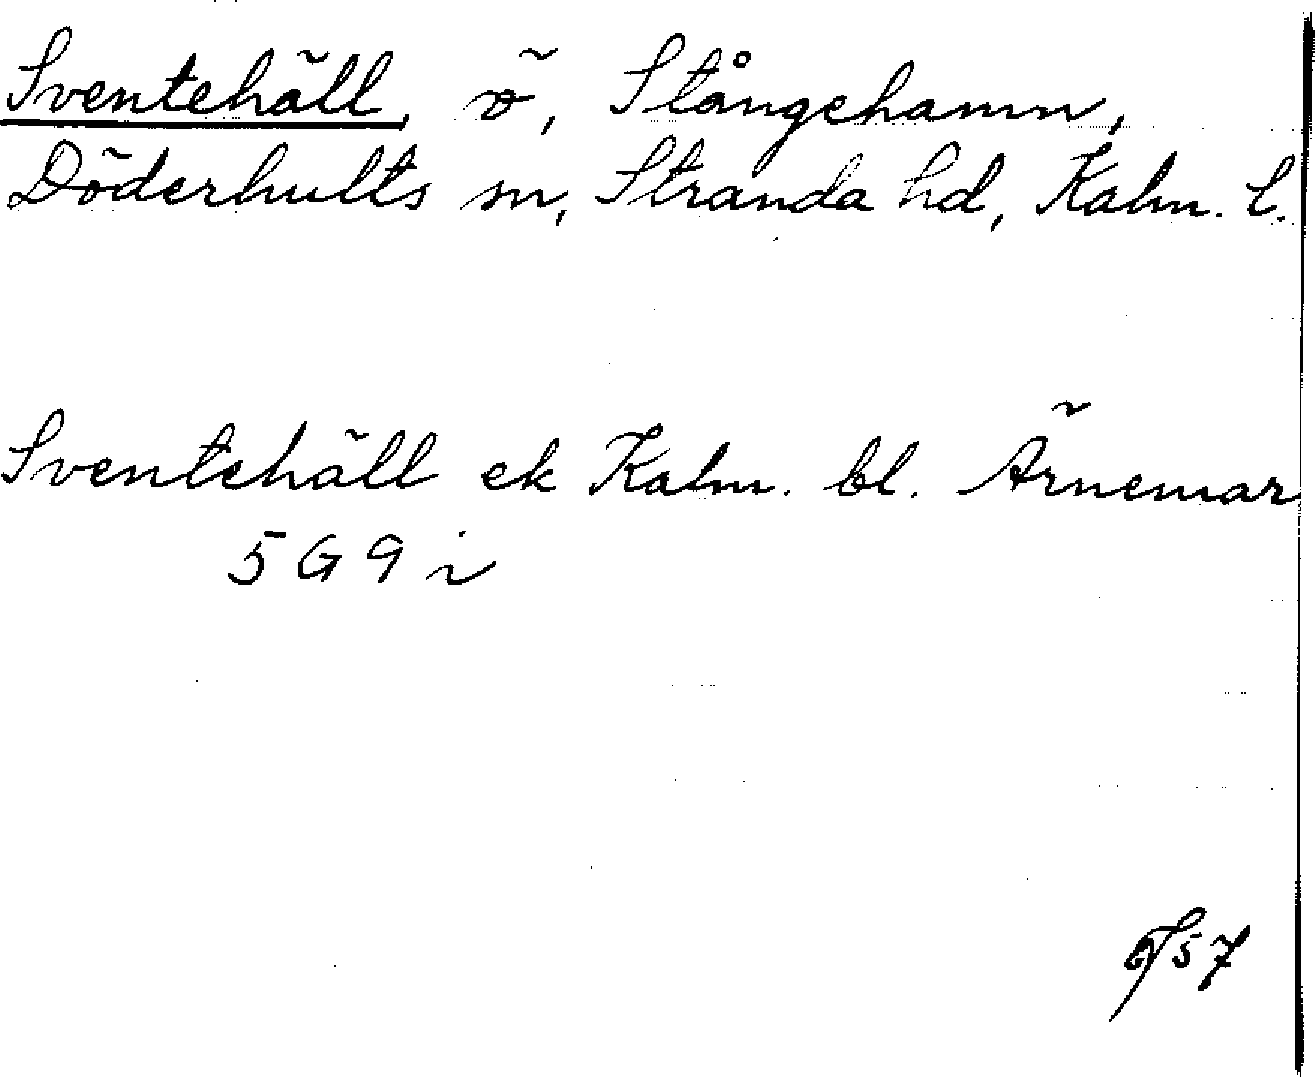 Sventehäll, ö, Stångehamn,
Döderhults sn, Stranda hd, Kalm. l.
Sventehäll ek Kalm. bl. Ärnemar
5 G 9 i
57